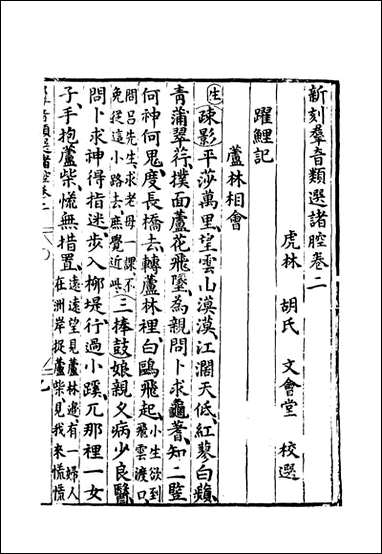 新刻羣音類選諸腔卷二
虎林 胡氏 文會堂 校選
躍鯉記
蘆林相會
生 疎影平莎萬里望雲山漠漠江濶天低紅蓼白蘋
青蒲翠荇撲面蘆花飛墜為親問卜求龜蓍知二監
何神何鬼度長橋去轉蘆林裡白鷗飛起小生欲到飛雲渡口
問呂先生求老母一課不免捉這小路去庶覺近些三捧鼓娘親乂病少良醫
問卜求神得指迷步入柳堤行過小蹊兀那裡一女
子手抱蘆柴慌無措置遠遠望見蘆林邊有一婦人在洲岸捉蘆柴見我來慌慌